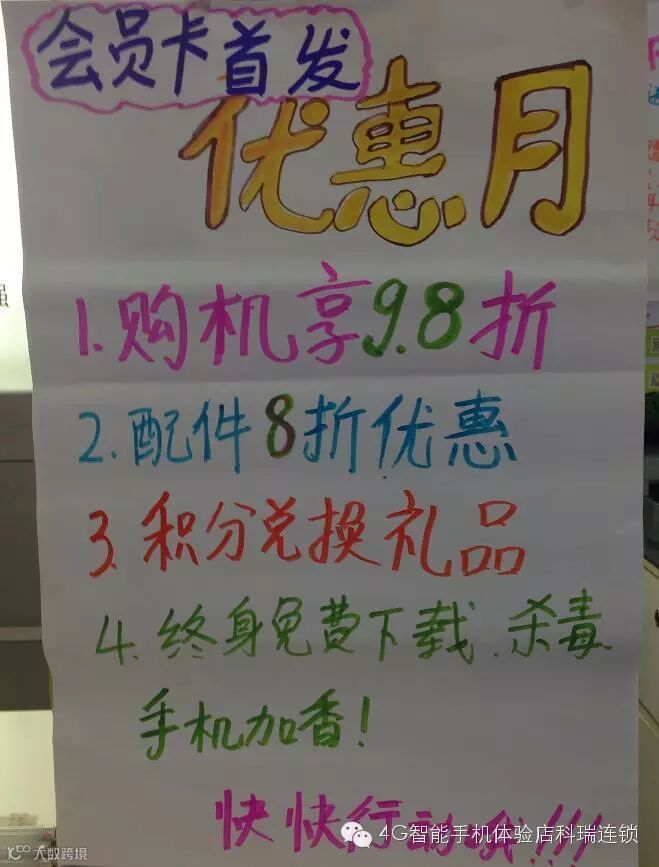 会员卡首发
优惠月
1.购机享9.8折
2.配件8折优惠
3.积分兑换礼品
4.终身免费下载.杀毒
手机加香!
快快行动哦!!!
4G智能手机体验店科瑞连锁
大数跨境